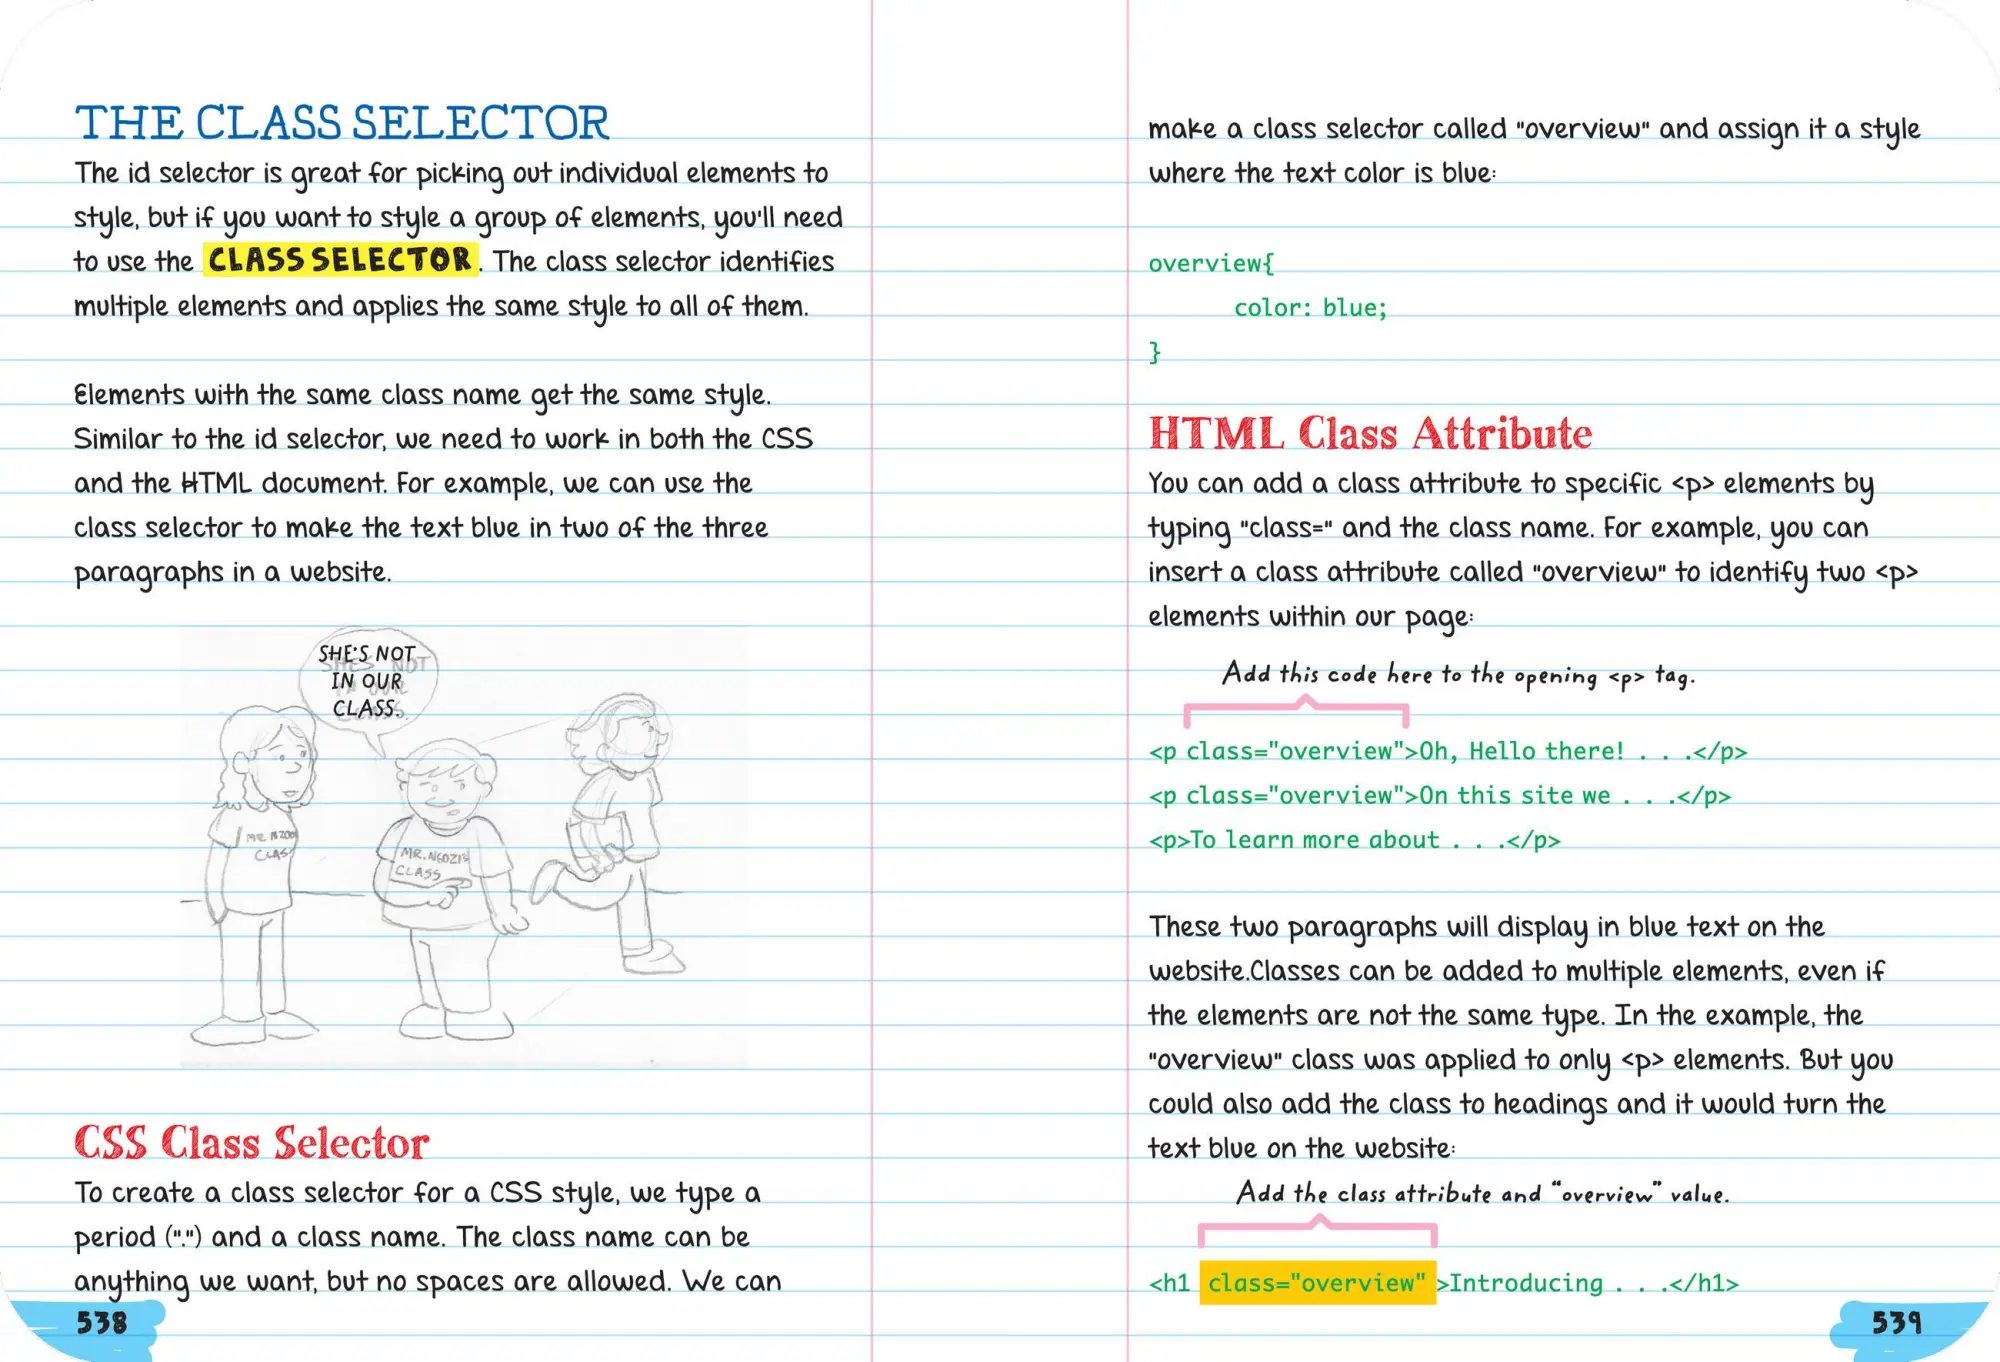 THE CLASS SELECTOR
The id selector is great for picking out individual elements to
style, but if you want to style a group of elements, you'll need
to use the CLASS SELECTOR. The class selector identifies
multiple elements and applies the same style to all of them.
Elements with the same class name get the same style.
Similar to the id selector, we need to work in both the CSS
and the HTML document. For example, we can use the
class selector to make the text blue in two of the three
paragraphs in a website.
SHE'S NOT
IN OUR
CLASS.
MR. NGOZI'S
CLASS
CSS Class Selector
To create a class selector for a CSS style, we type a
period (".") and a class name. The class name can be
anything we want, but no spaces are allowed. We can
538
make a class selector called "overview" and assign it a style
where the text color is blue:
overview{
color: blue;
}
HTML Class Attribute
You can add a class attribute to specific <p> elements by
typing "class=" and the class name. For example, you can
insert a class attribute called "overview" to identify two <p>
elements within our page:
Add this code here to the opening <p> tag.
<p class="overview">Oh, Hello there! . . .</p>
<p class="overview">On this site we . . .</p>
<p>To learn more about . . .</p>
These two paragraphs will display in blue text on the
website.Classes can be added to multiple elements, even if
the elements are not the same type. In the example, the
"overview" class was applied to only <p> elements. But you
could also add the class to headings and it would turn the
text blue on the website:
Add the class attribute and “overview” value.
<h1 class="overview" >Introducing . . .</h1>
539